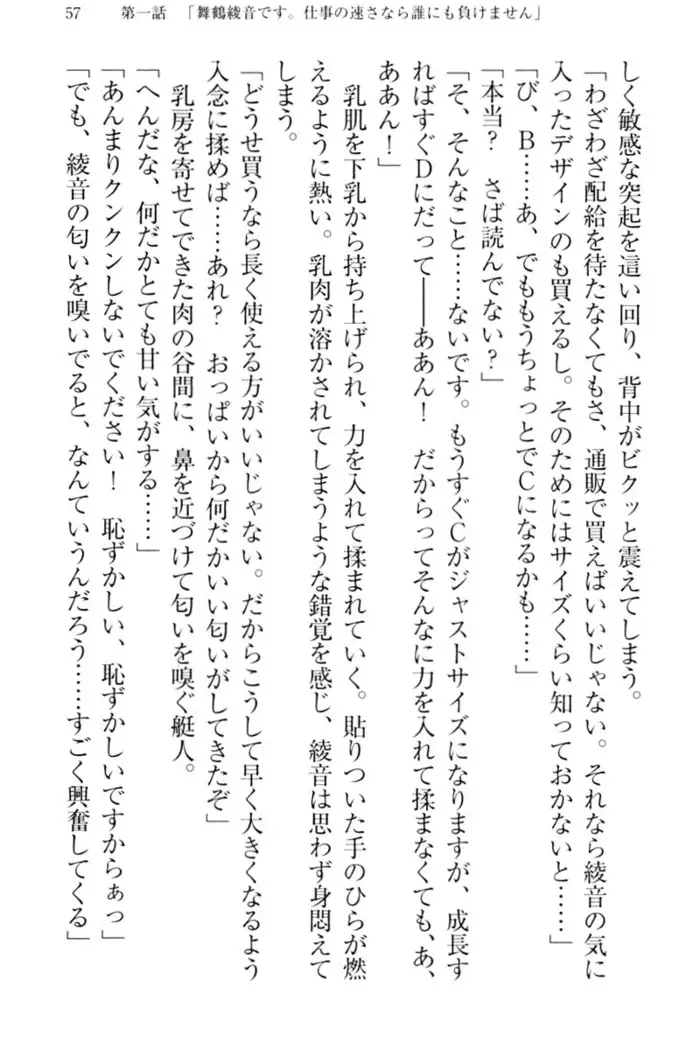 57　第一話　「舞鶴綾音です。仕事の速さなら誰にも負けません」
しく敏感な突起を這い回り、背中がビクッと震えてしまう。
「わざわざ配給を待たなくてもさ、通販で買えばいいじゃない。それなら綾音の気に
入ったデザインのも買えるし。そのためにはサイズくらい知っておかないと……」
「び、B……あ、でももうちょっとでCになるかも……」
「本当？　さば読んでない？」
「そ、そんなこと……ないです。もうすぐCがジャストサイズになりますが、成長す
ればすぐDにだって――ああん！　だからってそんなに力を入れて揉まなくても、あ、
ああん！」
乳肌を下乳から持ち上げられ、力を入れて揉まれていく。貼りついた手のひらが燃
えるように熱い。乳肉が溶かされてしまうような錯覚を感じ、綾音は思わず身悶えて
しまう。
「どうせ買うなら長く使える方がいいじゃない。だからこうして早く大きくなるよう
入念に揉めば……あれ？　おっぱいから何だかいい匂いがしてきたぞ」
乳房を寄せてできた肉の谷間に、鼻を近づけて匂いを嗅ぐ艇人。
「へんだな、何だかとても甘い気がする……」
「あんまりクンクンしないでください！　恥ずかしい、恥ずかしいですからぁっ」
「でも、綾音の匂いを嗅いでると、なんていうんだろう……すごく興奮してくる」